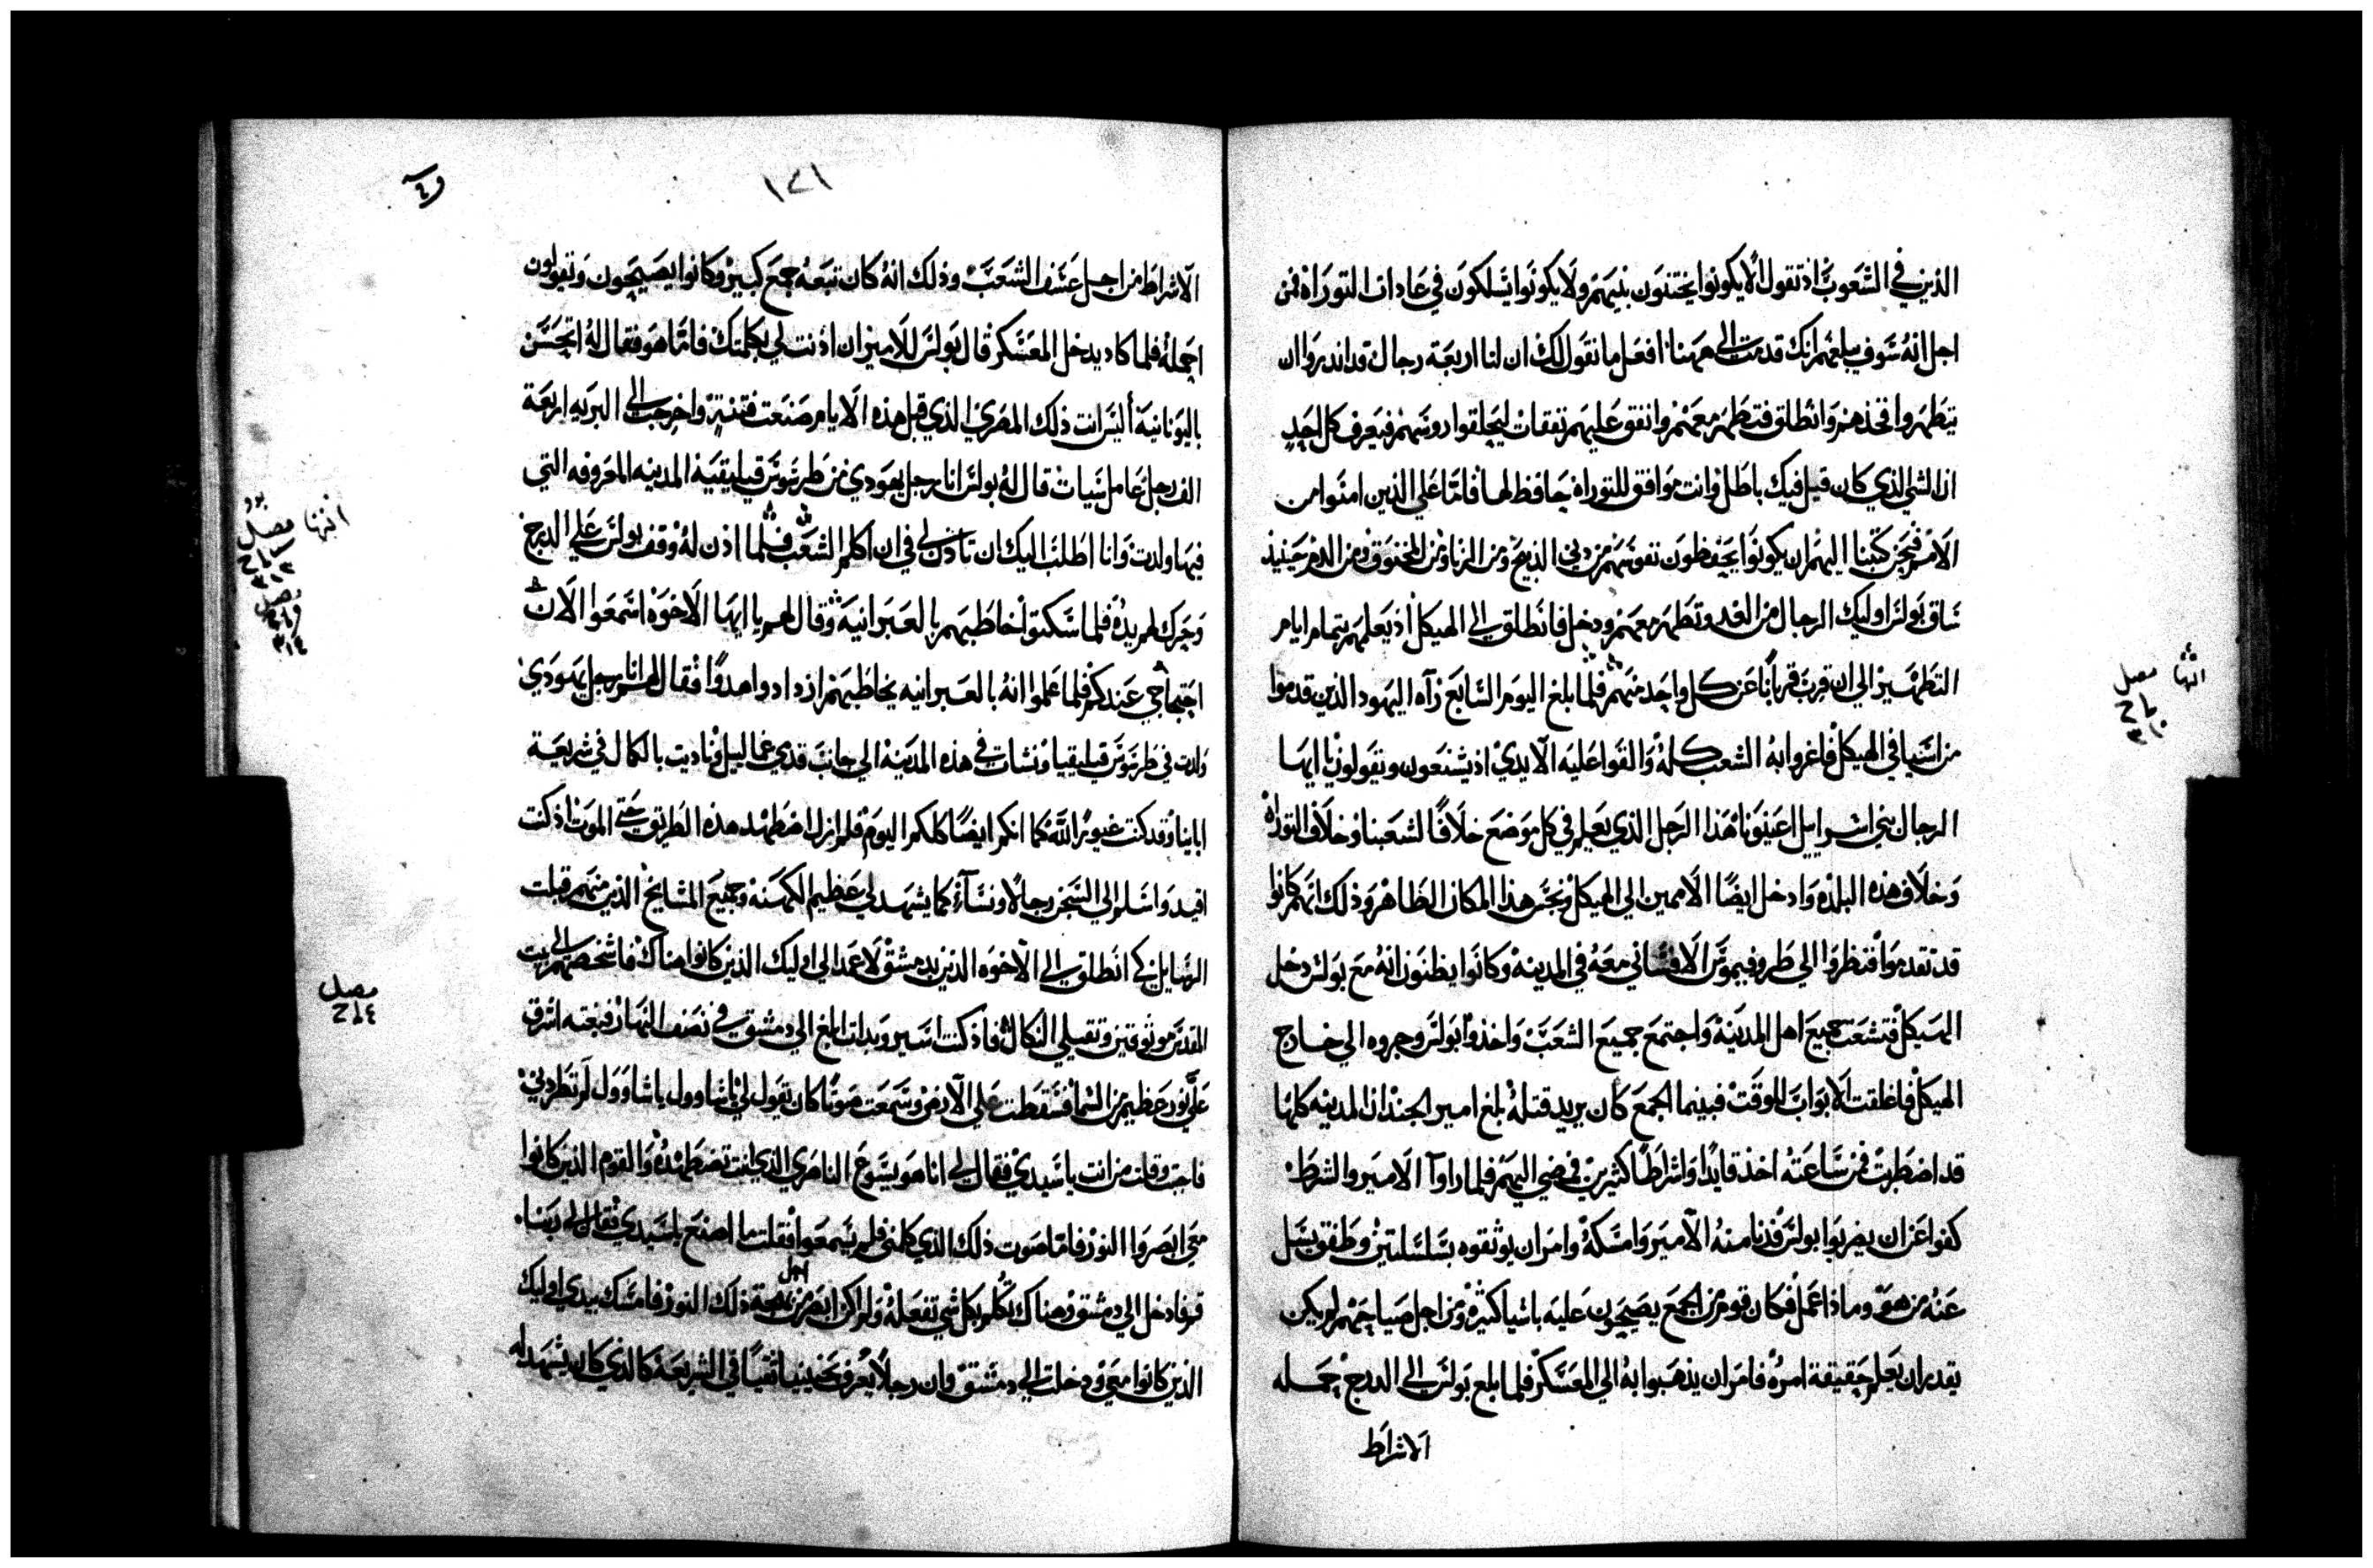 الذين في الشعوب اذ تقول الا يكونوا يختنون بنيهم ولا يكونوا يسلكون في عادات التوراه فمن
اجل انه سوف يبلغهم انك قدمت الى ههنا افعل ما نقول لك ان لنا اربعة رجال قد اندروا ان
يتطهروا فخذهم وانطلق فتطهر معهم وانفق عليهم نفقات ليحلقوا روسهم فيعرف كل احد
ان الشي الذي كان قيل فيك باطل وانت موافق للتوراه حافظ لها فاما على الذين امنوا من
الامم فنحن كتبنا اليهم ان يكونوا يحفظون نفوسهم من دبي الذبيح ومن الزنا ومن المخنوق ومن الدم حينيذ
ساق بولس اوليك الرجال من الغد وتطهر معهم ودخل فانطلق الى الهيكل اذ يعلمهم بتمام ايام
التطهير الى ان قرب قربانا عن كل واحد منهم فلما بلغ اليوم السابع رآه اليهود الذين قدموا
من اسيا في الهيكل فاغروا به الشعب كله والقوا عليه الايدي اذ يشنعون ويقولون يا ايها
الرجال بني اسراييل اعينونا هذا الرجل الذي يعلم في كل موضع خلافا لشعبنا وخلاف التوراه
وخلاف هذه البلده وادخل ايضا الامميين الى الهيكل ونجس هذا المكان الطاهر وذلك انهم كانوا
قد تقدموا فنظروا الى طروفيموس الافساني معه في المدينه وكانوا يظنون انه مع بولس دخل
الهيكل فتشعب جميع اهل المدينة واجتمع جميع الشعب واخذوا بولس وجروه الى خارج
الهيكل فاغلقت الابواب للوقت فبينما الجمع كان يريد قتله بلغ امير الجند ان المدينه كلها
قد اضطربت فمن ساعته اخذ قايدا واشراطا كثيرين فمضى اليهم فلما راوا الامير والشرط
كفوا عن ان يضربوا بولس فدنا منه الامير وامسكه وامر ان يوثقوه بسلسلتين وطفق يسل
عنه من هو وماذا عمل فكان قوم من الجمع يصيحون عليه باشيا كثيره ومن اجل صياحهم لم يكن
يقدر ان يعلم حقيقة امره فامر ان يذهبوا به الى المعسكر فلما بلع بولس الى الدرج حمله
الاشراط
انتها فصل
١٤١
الاشراط من اجل عسف الشعب وذلك انه كان تبعه جمع كبير وكانوا يصيحون وتقولون
احمله فلما كاد يدخل المعسكر قال بولس للامير ان اذنت لي بكلمتك فاما هو فقال له اتحسن
باليونانية أليس انت ذلك المصري الذي قبل هذه الايام صنعت فتنة واخرجت الى البريه اربعة
الف رجل عامل سيات قال له بولس انا رجل يهودي من طرسوس قيليقية المدينه المعروفه التي
فيها ولدت وانا اطلب اليك ان تاذن لي في ان اكلم الشعب فلما اذن له وقف بولس على الدرج
وحرك لهم يده فلما سكتوا خاطبهم بالعبرانية وقال لهم يا ايها الاخوه اسمعوا الان
احتجاجي عندكم فلما علموا انه بالعبرانيه يخاطبهم ازدادوا هدوا فقال لهم انا رجل يهودي
ولدت في طرسوس قيليقيا ونشات في هذه المدينه الى جانب قدمي غماليل وتاديت بالكمال في شريعة
اباينا وقد كنت غيورا لله كما انكم ايضا كلكم اليوم فلم ازل اضطهد هذه الطريق حتى الموت اذ كنت
اقيد واسلم الى السجن رجالا ونساء كما يشهد لي عظيم الكهنه وجميع المشايخ الذين منهم قبلت
الرسايل كي انطلق الى الاخوه الذين بدمشق لاعمد الى اوليك الذين كانوا هناك فاشخصهم الى بيت
المقدس موثوقين وتقبلي النكال فاذ كنت اسير وبدات ابلغ الى دمشق في نصف النهار فبغته اشرق
علي نور عظيم من السما فسقطت على الارض وسمعت صوتا كان يقول لي يا شاوول يا شاوول لم تطردني
فاجبت وقلت من انت يا سيدي فقال لي انا هو يسوع الناصري الذي انت تضطهده والقوم الذين كانوا
معي ابصروا النور فاما صوت ذلك الذي كلمني فلم يسمعوا فقلت ما اصنع يا سيدي فقال لي ربنا
قم فادخل الى دمشق وهناك تكلم بكل شي تفعله ولم اكن ابصر من اجل بهجة ذلك النور فامسك بيدي اوليك
الذين كانوا معي ودخلت الى دمشق وان رجلا يعرف بحنينيا تقيا في الشريعة كالذي كان يشهد له
انتها فصل
فصل